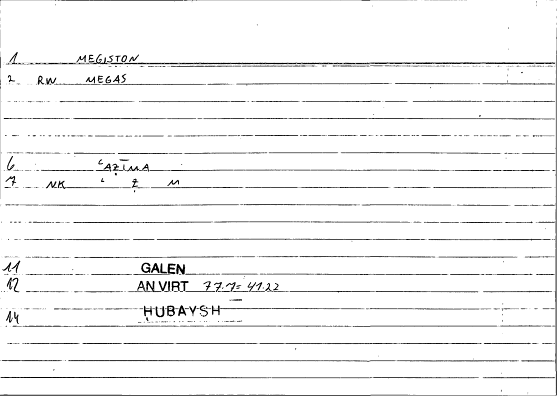 1 MEGISTON
2 RW MEGAS
6 ʿAẒĪMA
7 NK ʿ Ẓ M
11 GALEN
12 AN VIRT 77.1= 41.22
14 ḤUBAYSH